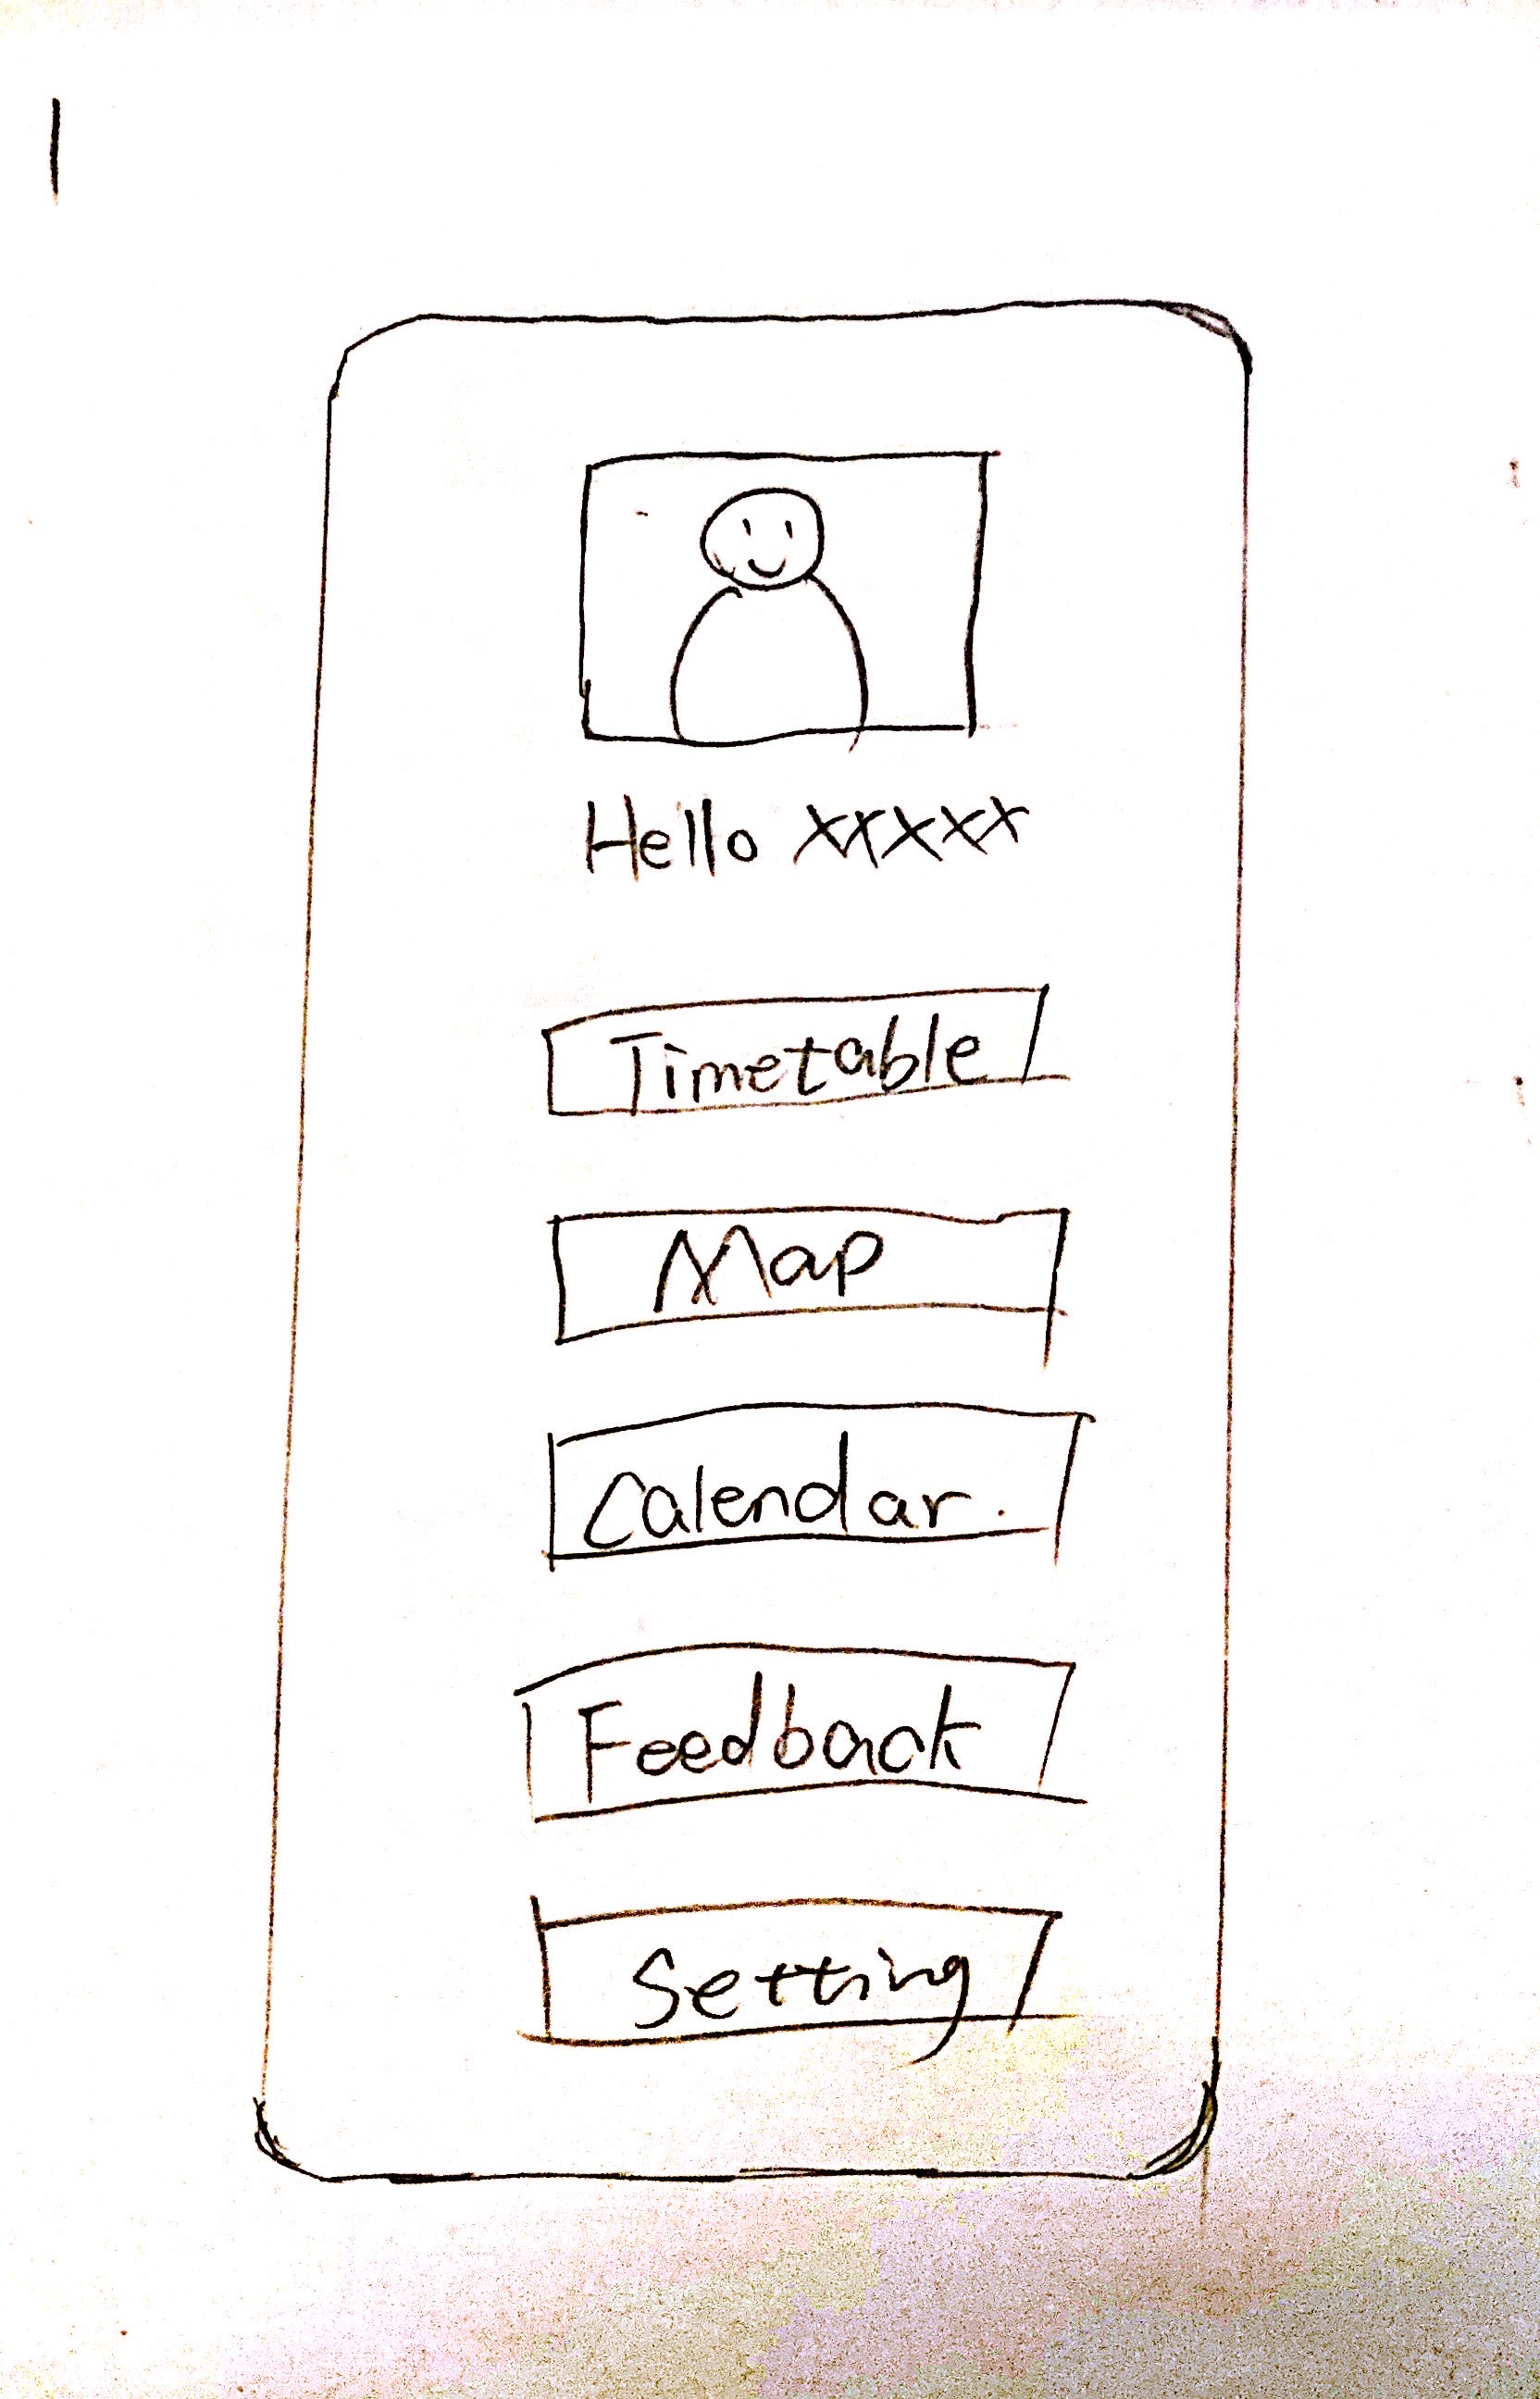 1
Hello xxxxx
Timetable
Map
Calendar.
Feedback
Setting